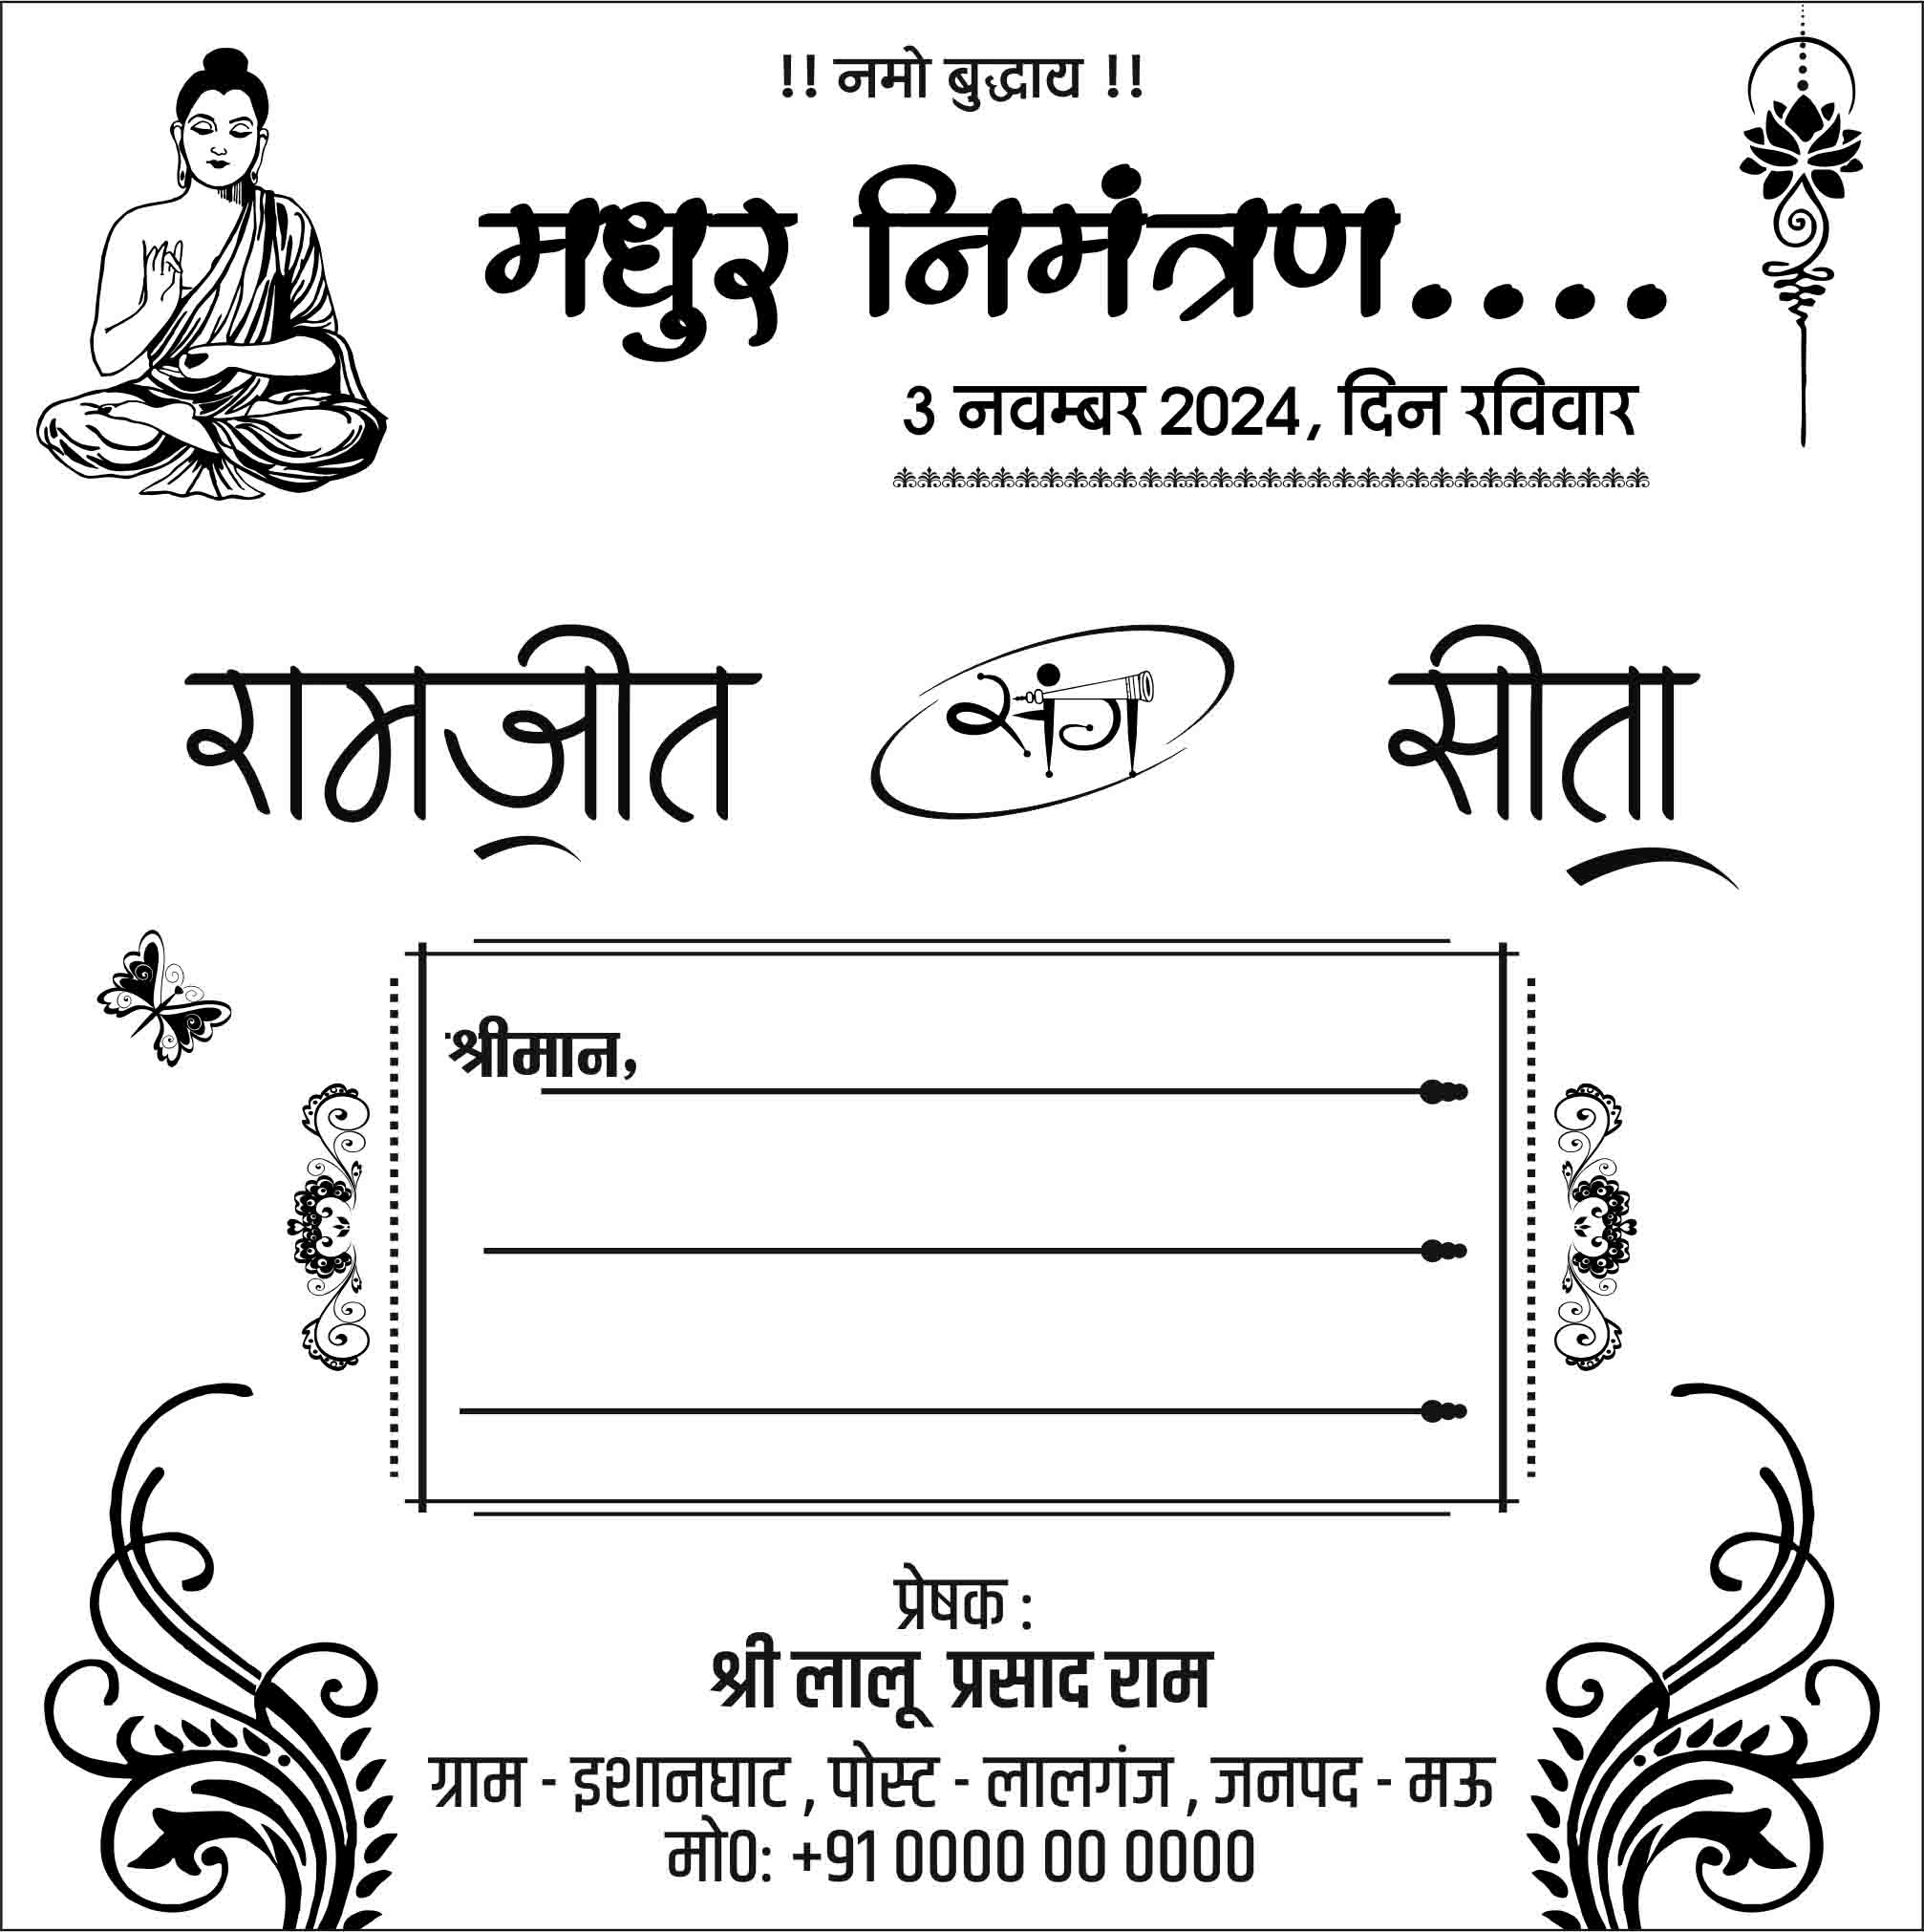 !! नमो बुद्धाय !!
मधुर निमंत्रण....
3 नवम्बर 2024, दिन रविवार
रामजीत संग सीता
श्रीमान,
प्रेषक :
श्री लालू प्रसाद राम
ग्राम - इशानघाट , पोस्ट - लालगंज , जनपद - मऊ
मो0: +91 0000 00 0000